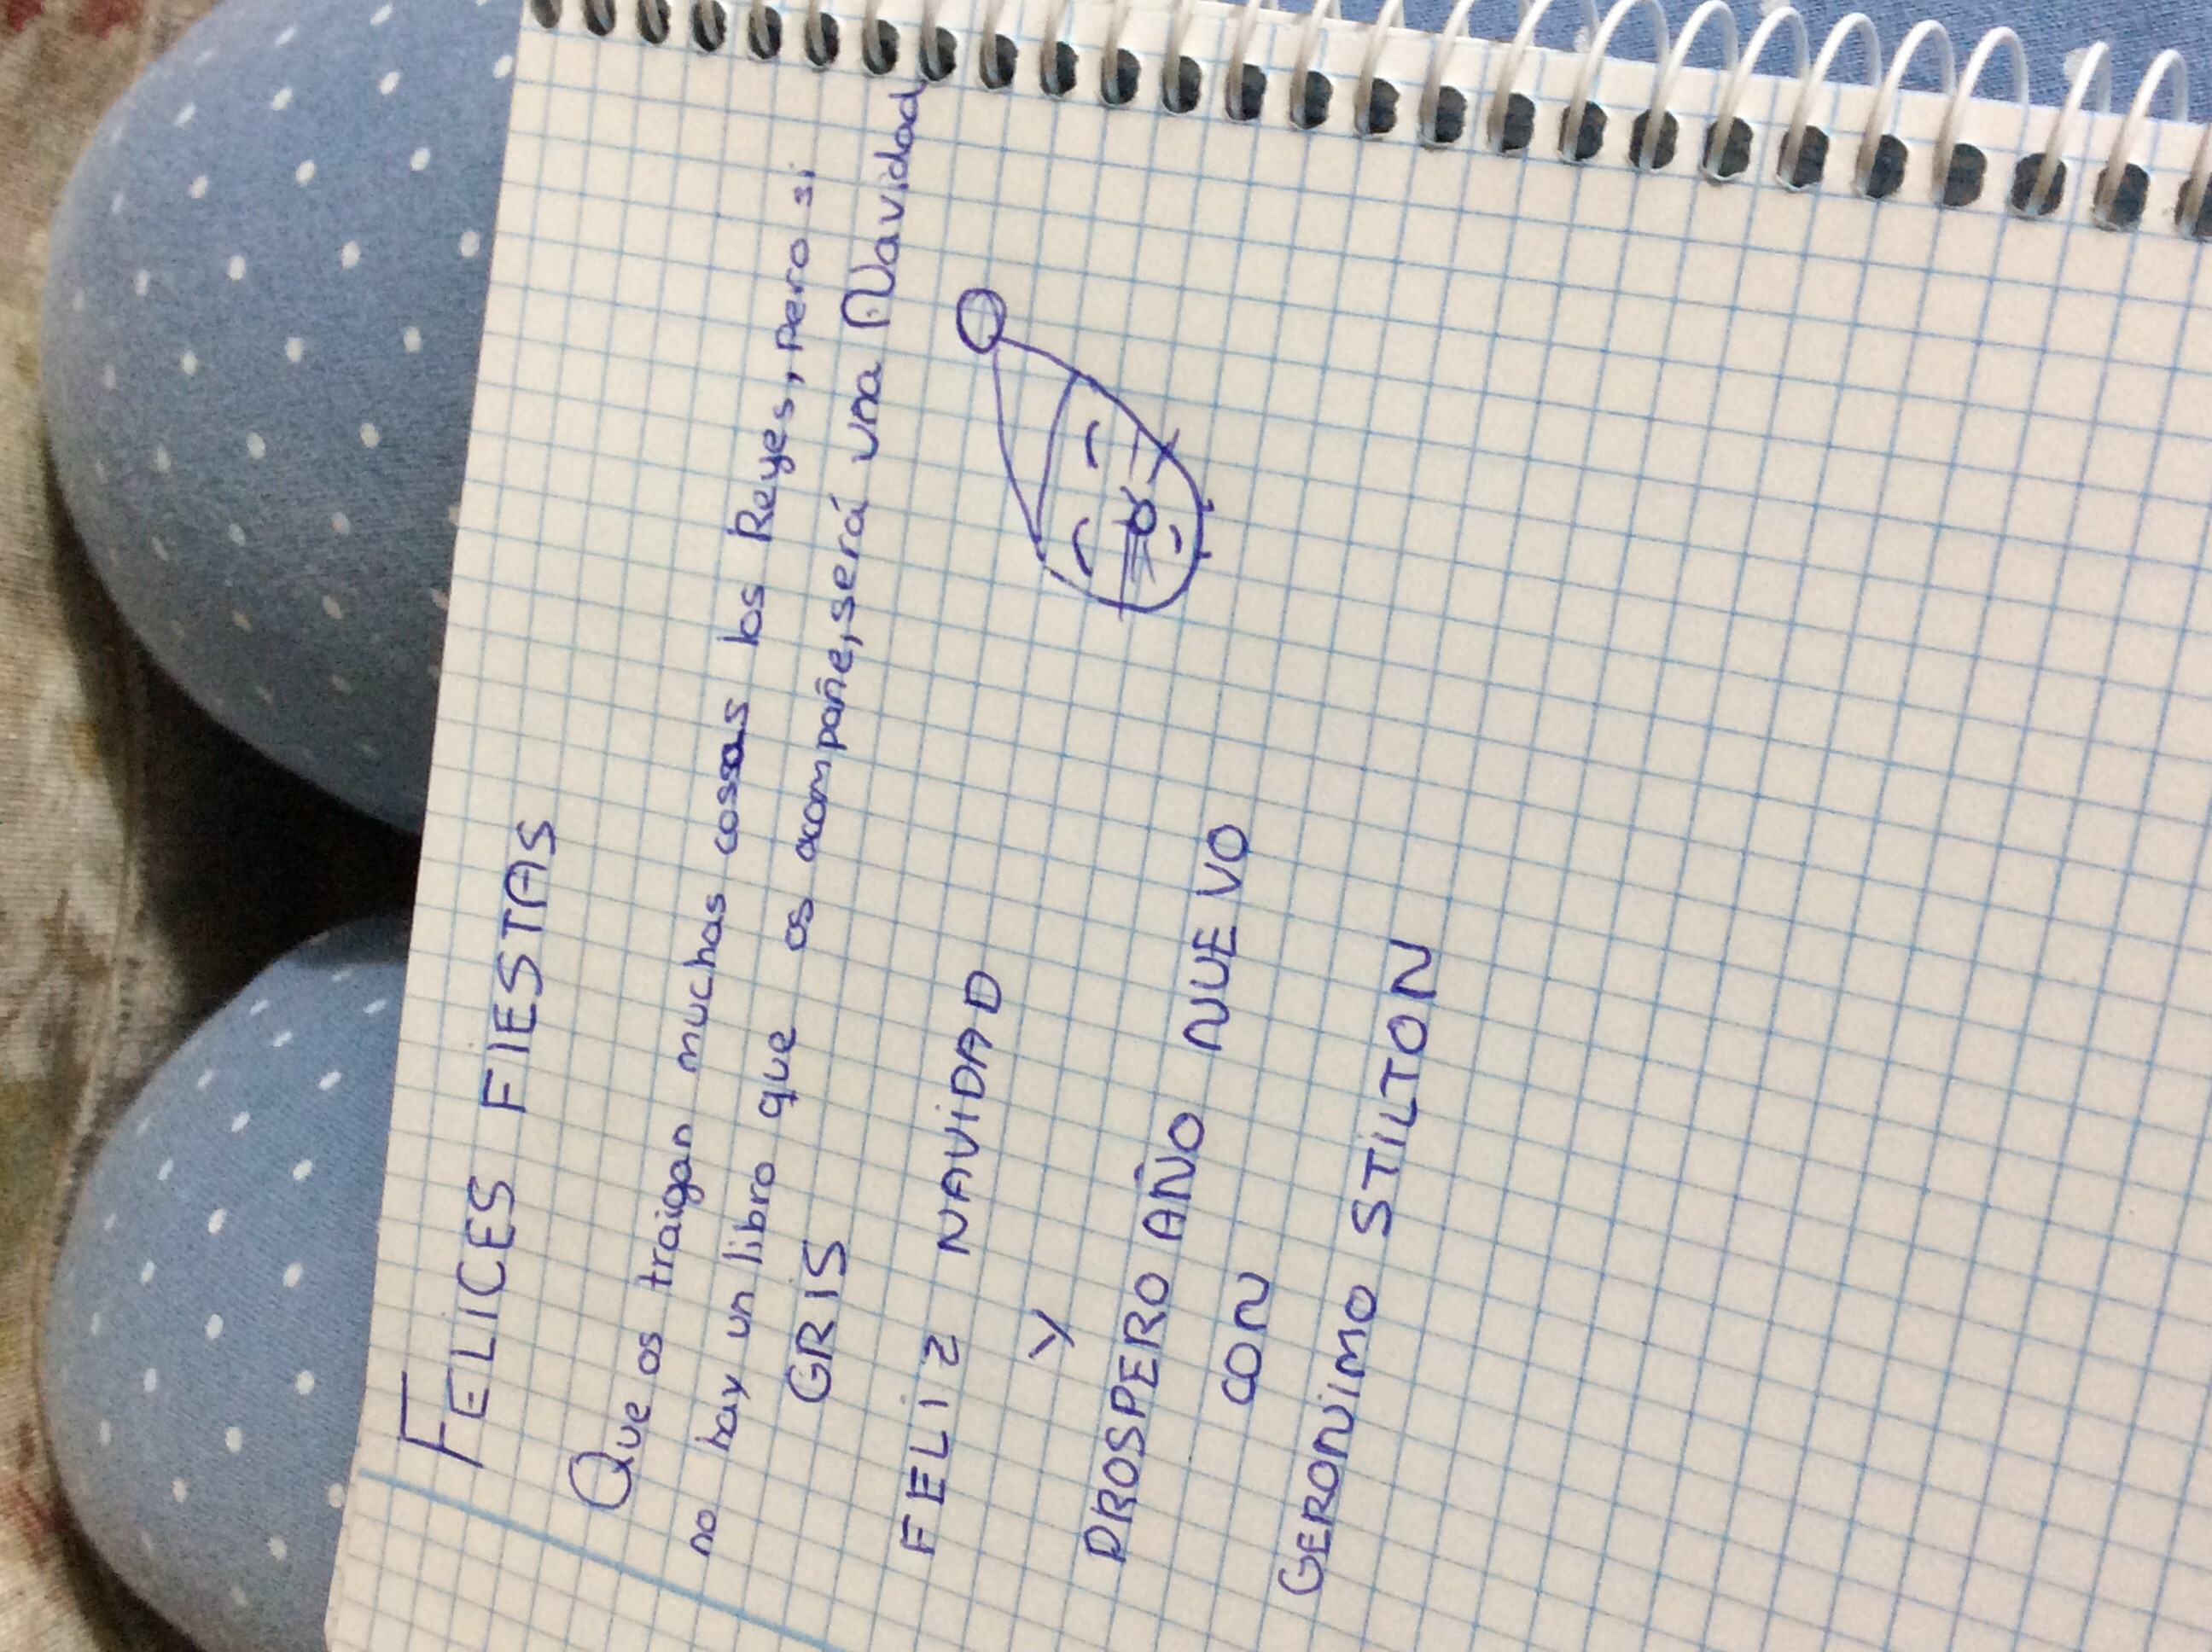 FELICES FIESTAS
Que os traigan muchas cosas los Reyes, pero si
no hay un libro que os acompañe, será una Navidad
GRIS
FELIZ NAVIDAD
Y
PROSPERO AÑO NUEVO
CON
GERONIMO STILTON